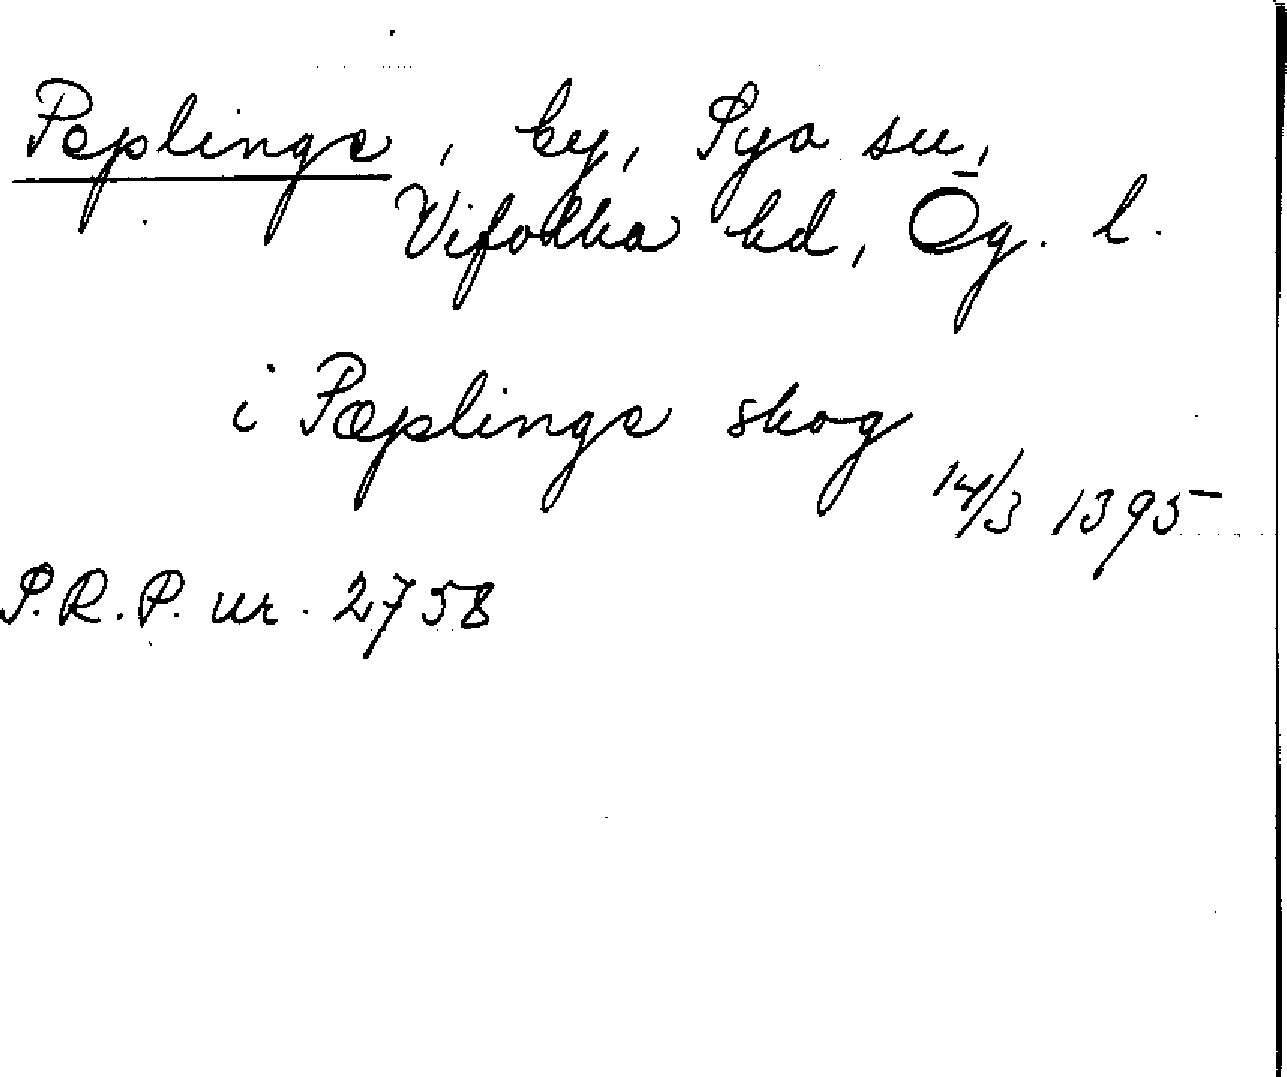 Peplinge, by, Sya sn,
Vifolka hd, Ög. l.
i Pæplinge skog
14/3 1395
S.R.P. nr. 2758